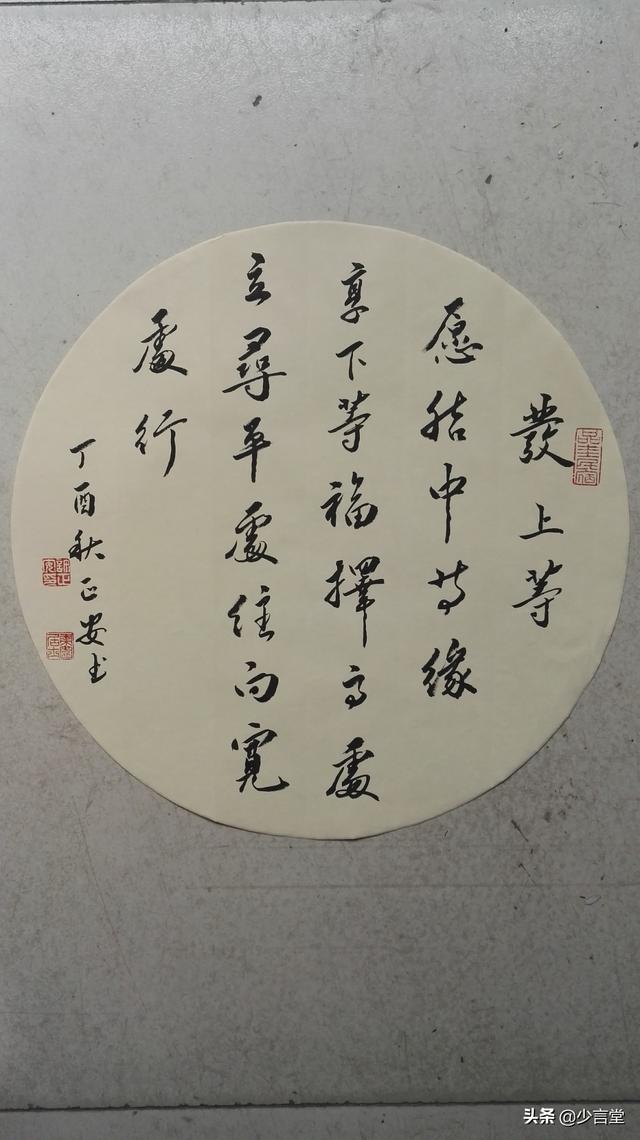 發上等
愿结中等缘
享下等福擇高處
立尋平處住向寬
處行
丁酉秋正安书
头条 @少言堂